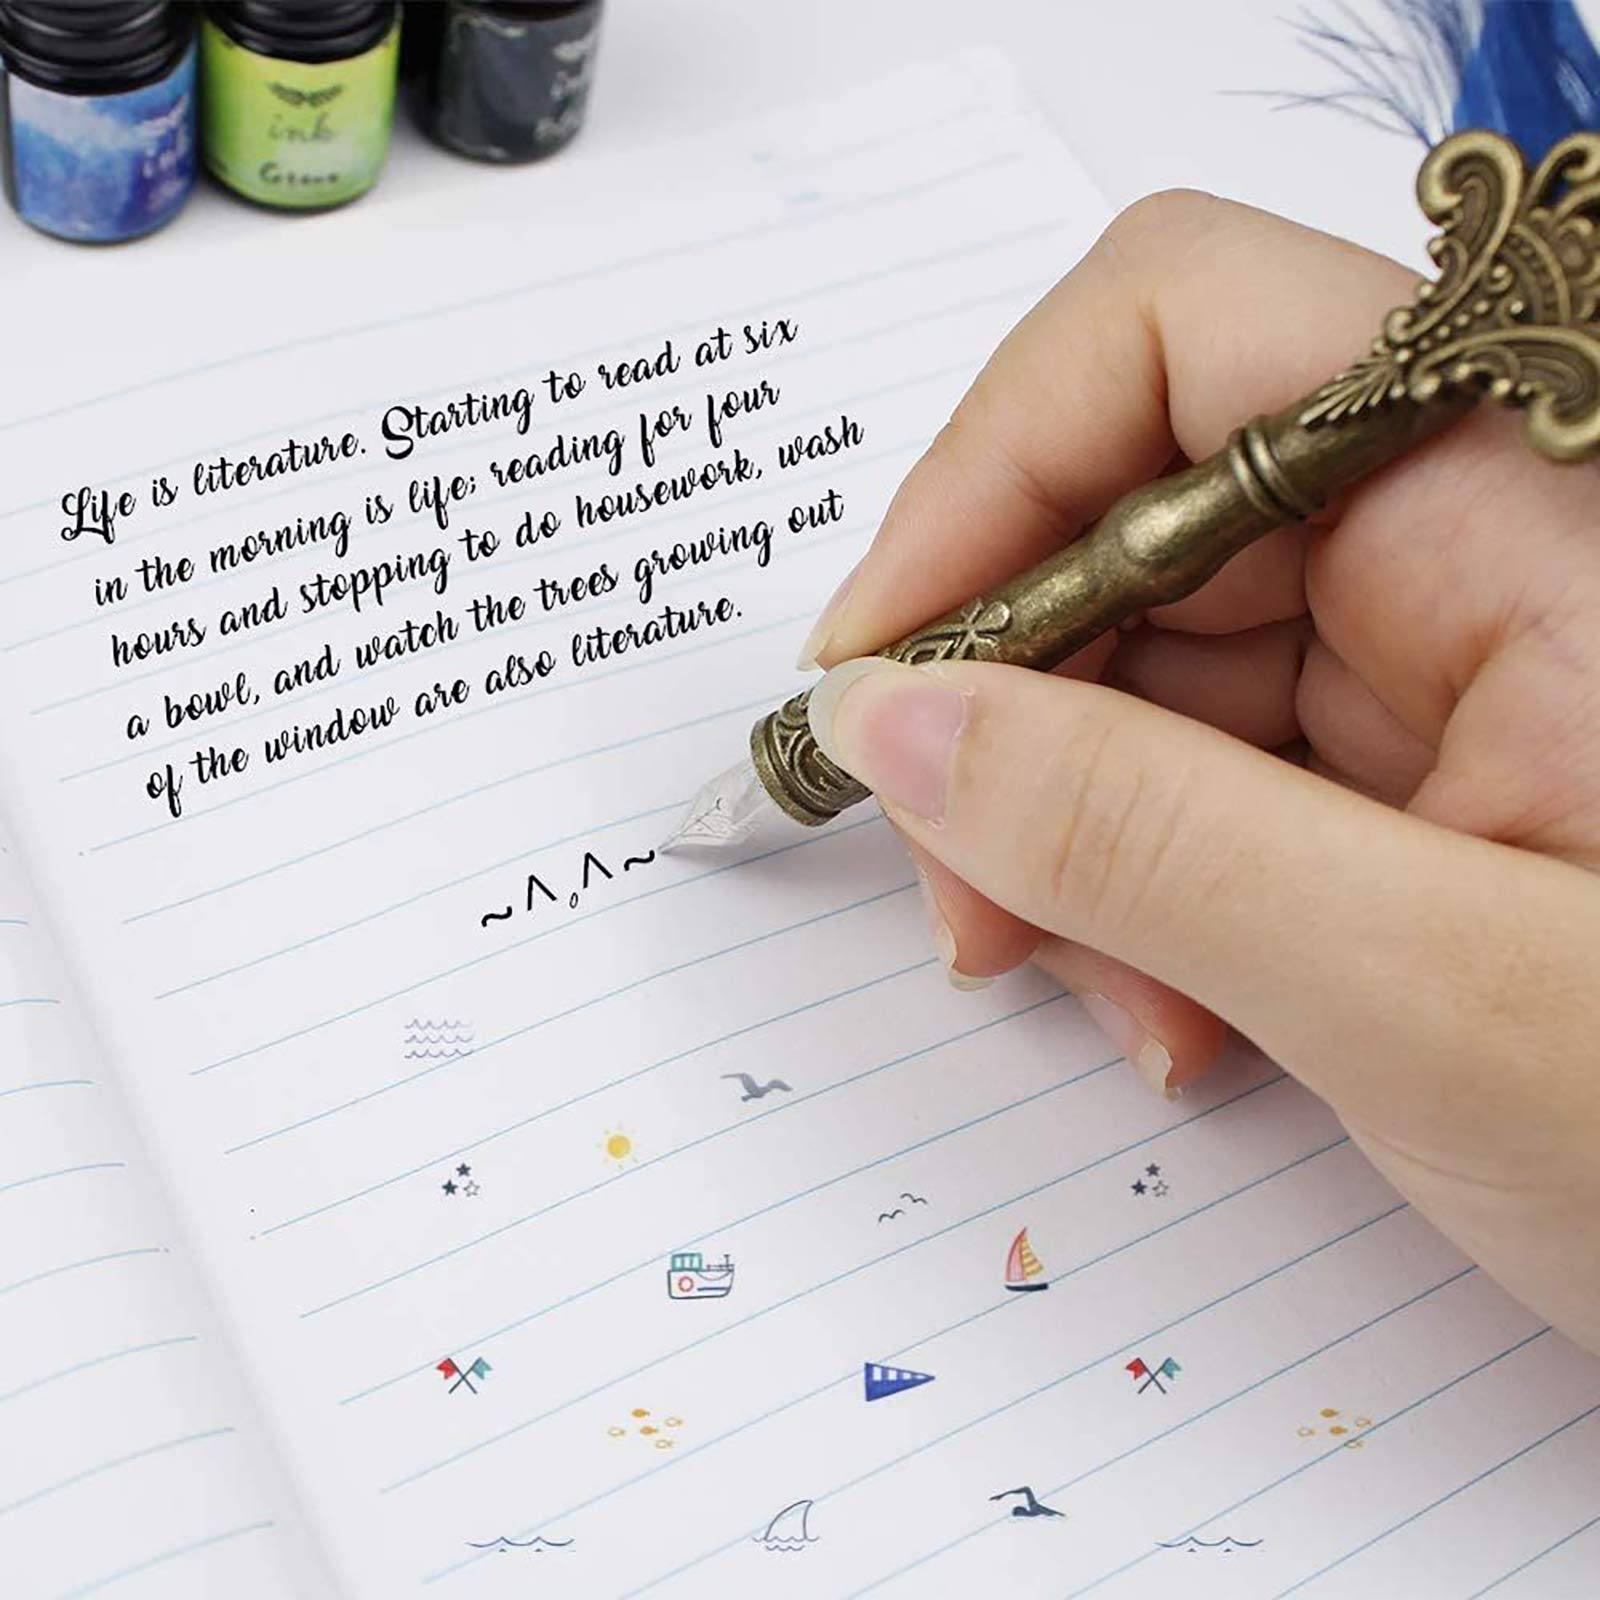 ink
ink
Green
Life is literature. Starting to read at six
in the morning is life; reading for four
hours and stopping to do housework, wash
a bowl, and watch the trees growing out
of the window are also literature.
~^。^~